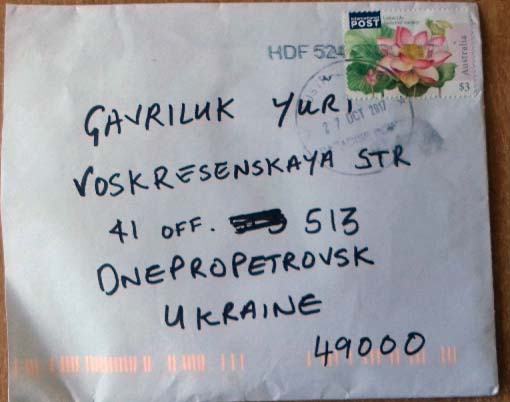 International
POST
Australia
$3
HDF
27 OCT 2017
GAVRILUK YURI
VOSKRESENSKAYA STR
41 OFF. 513
DNEPROPETROVSK
UKRAINE
49000